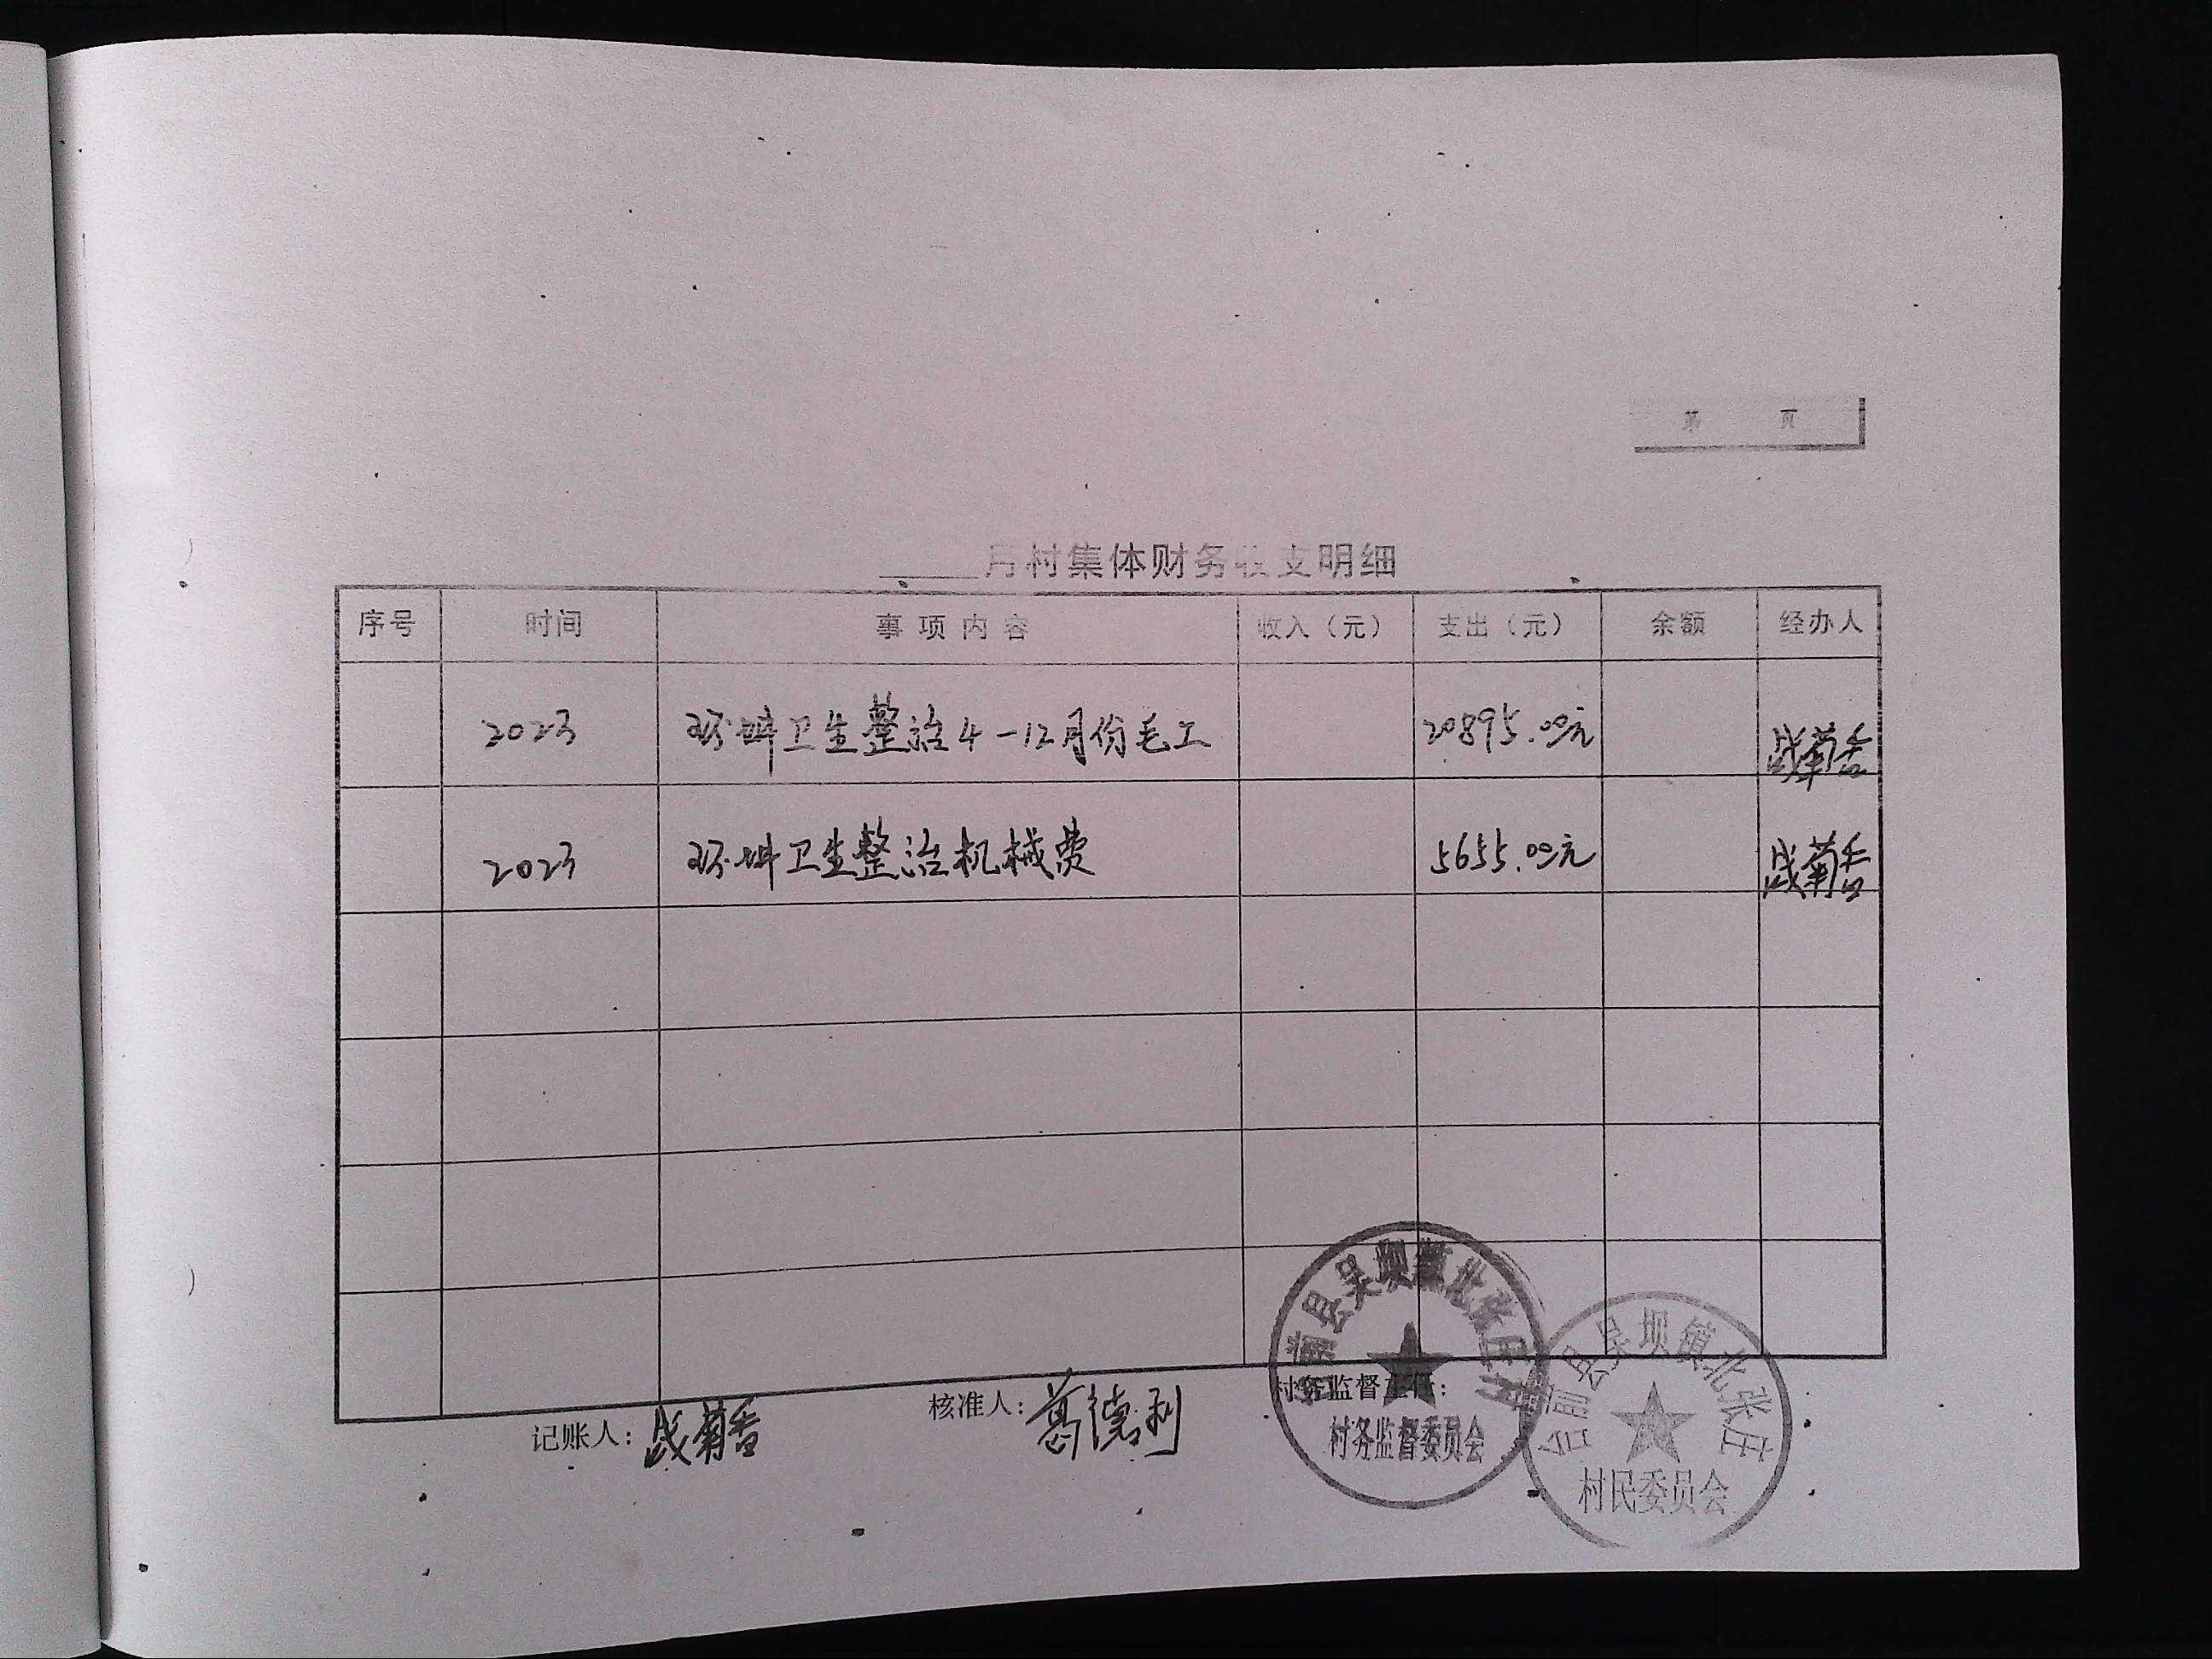 第 页
月村集体财务收支明细
序号 时间 事项内容 收入（元） 支出（元） 余额 经办人
2023 环境卫生整治4-12月份毛工 20895.00元 战菊香
2023 环境卫生整治机械费 5655.00元 战菊香
记账人：战菊香 核准人：葛德利 村务监督主任：
台前县吴坝镇北张庄村
村务监督委员会
台前县吴坝镇北张庄
村民委员会